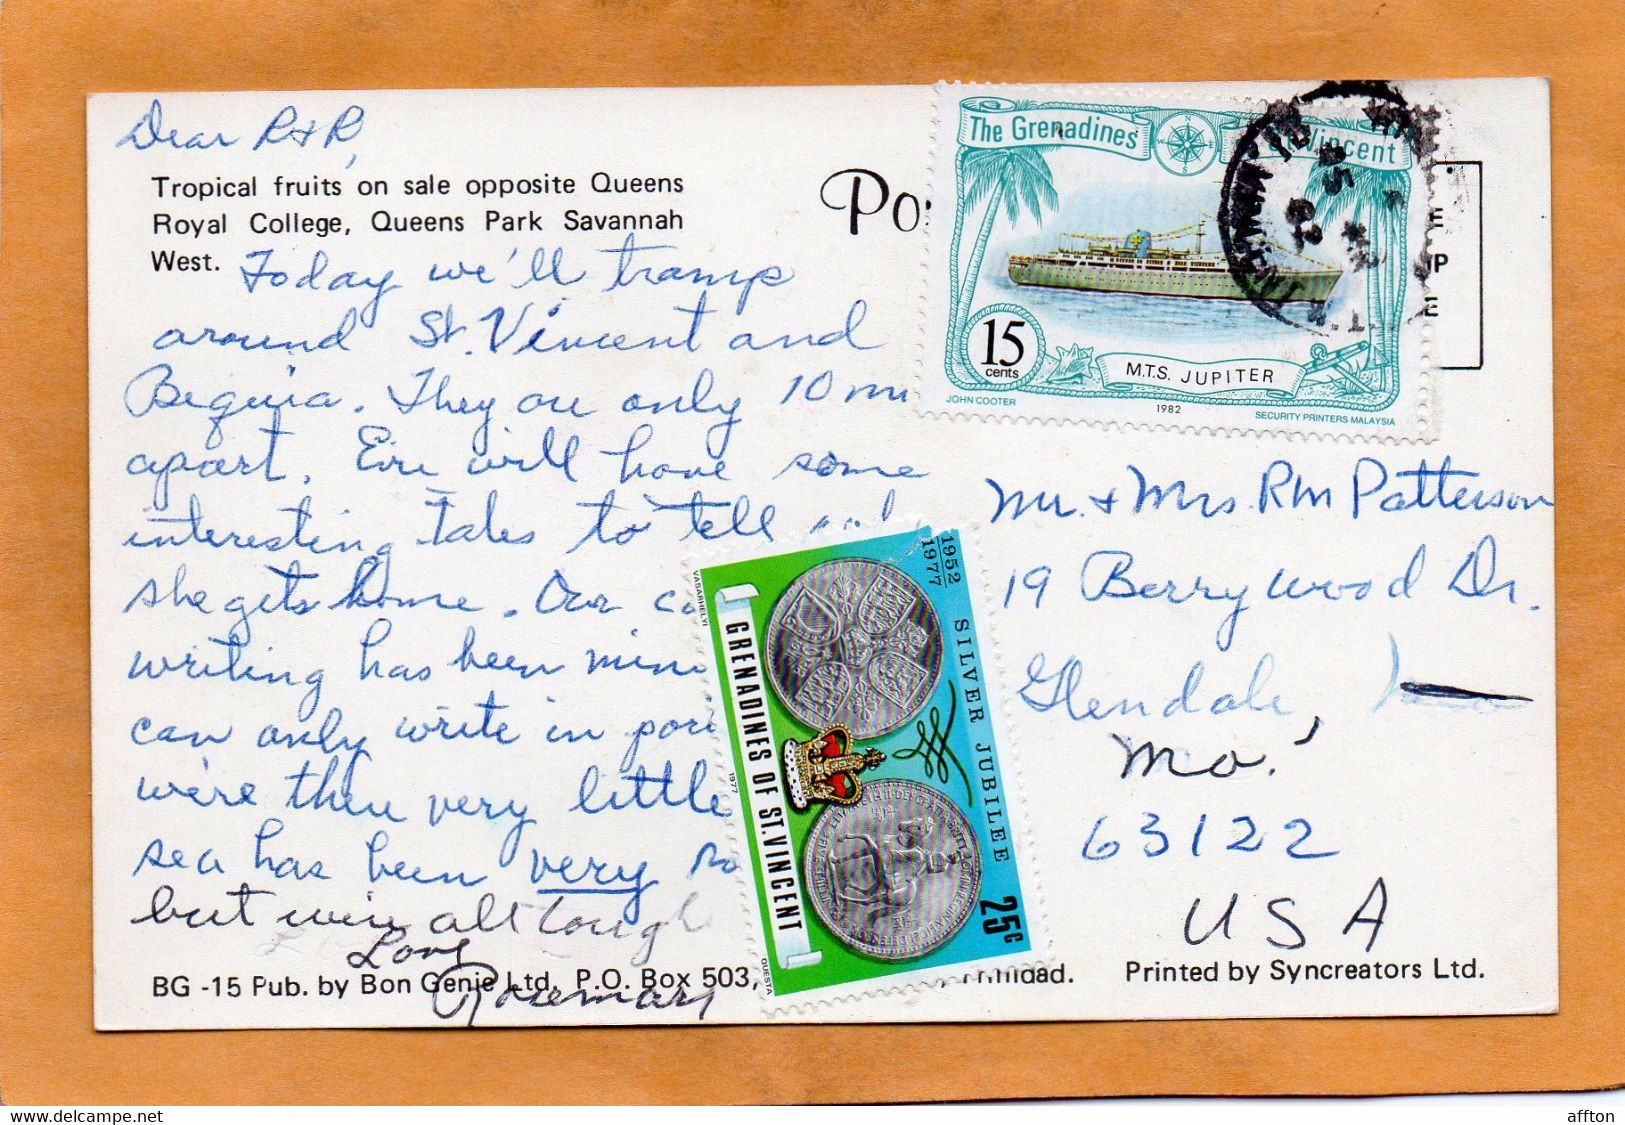 Dear R & R,
Tropical fruits on sale opposite Queens
Royal College, Queens Park Savannah
West.
Today we'll tramp
around St. Vincent and
Bequia. They are only 10 mi
apart. will have some
interesting tales to tell
she gets home. Our
writing has been
can only write in
were then very little
sea has been very
but we're all tough
Love
Rosemary
BG -15 Pub. by Bon Genie Ltd. P.O. Box 503,
Trinidad.
Printed by Syncreators Ltd.
The Grenadines
Vincent
15
cents
M.T.S. JUPITER
JOHN COOTER
1982
SECURITY PRINTERS MALAYSIA
Mr. & Mrs. RM Patterson
19 Berrywood Dr.
Glendale,
Mo.
63122
USA
1952
1977
SILVER JUBILEE
GRENADINES OF ST.VINCENT
25c
VASARHELYI
1977
QUESTA
affton